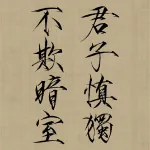 君子慎獨
不欺暗室